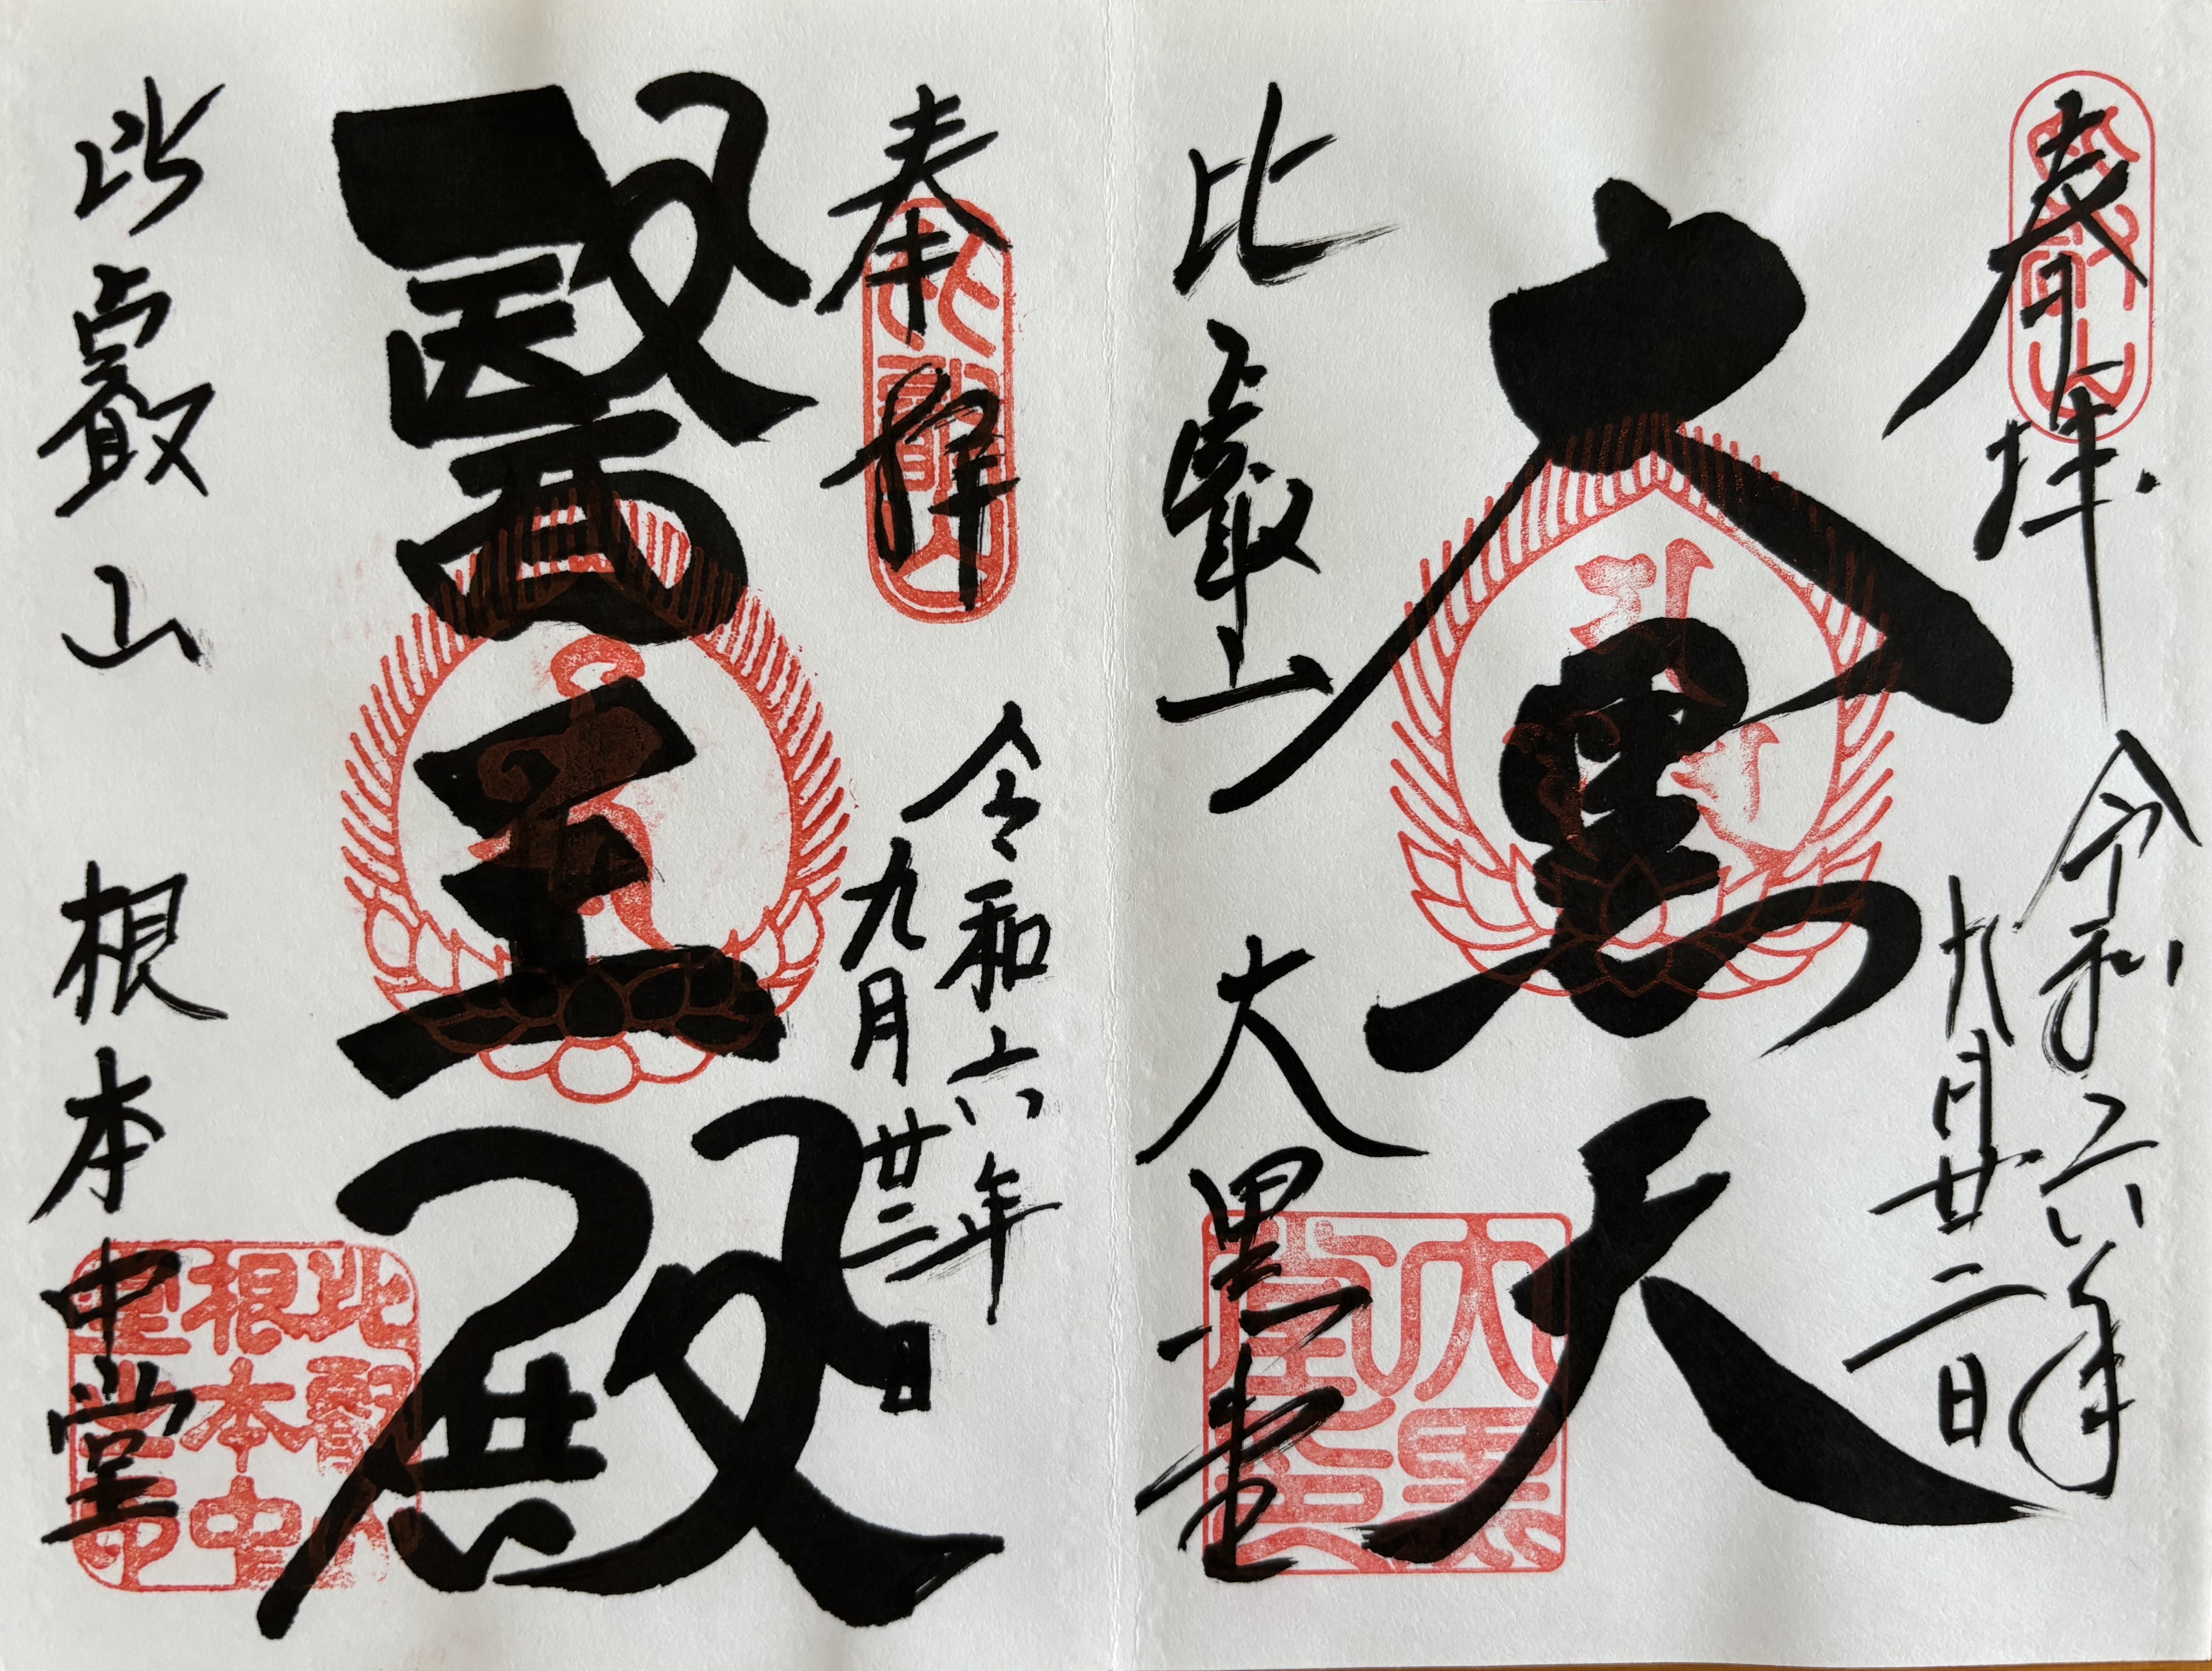 奉拝
令和六年
九月廿二日
大黒天
比叡山 大黒堂
比叡山
奉拝
令和六年
九月廿二日
醫王殿
比叡山
比叡山 根本中堂
比叡山
根本中
堂